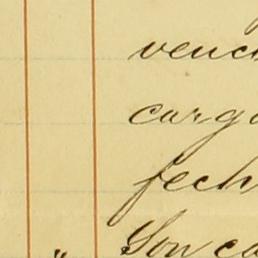 venc
carg
fech
" Son ca